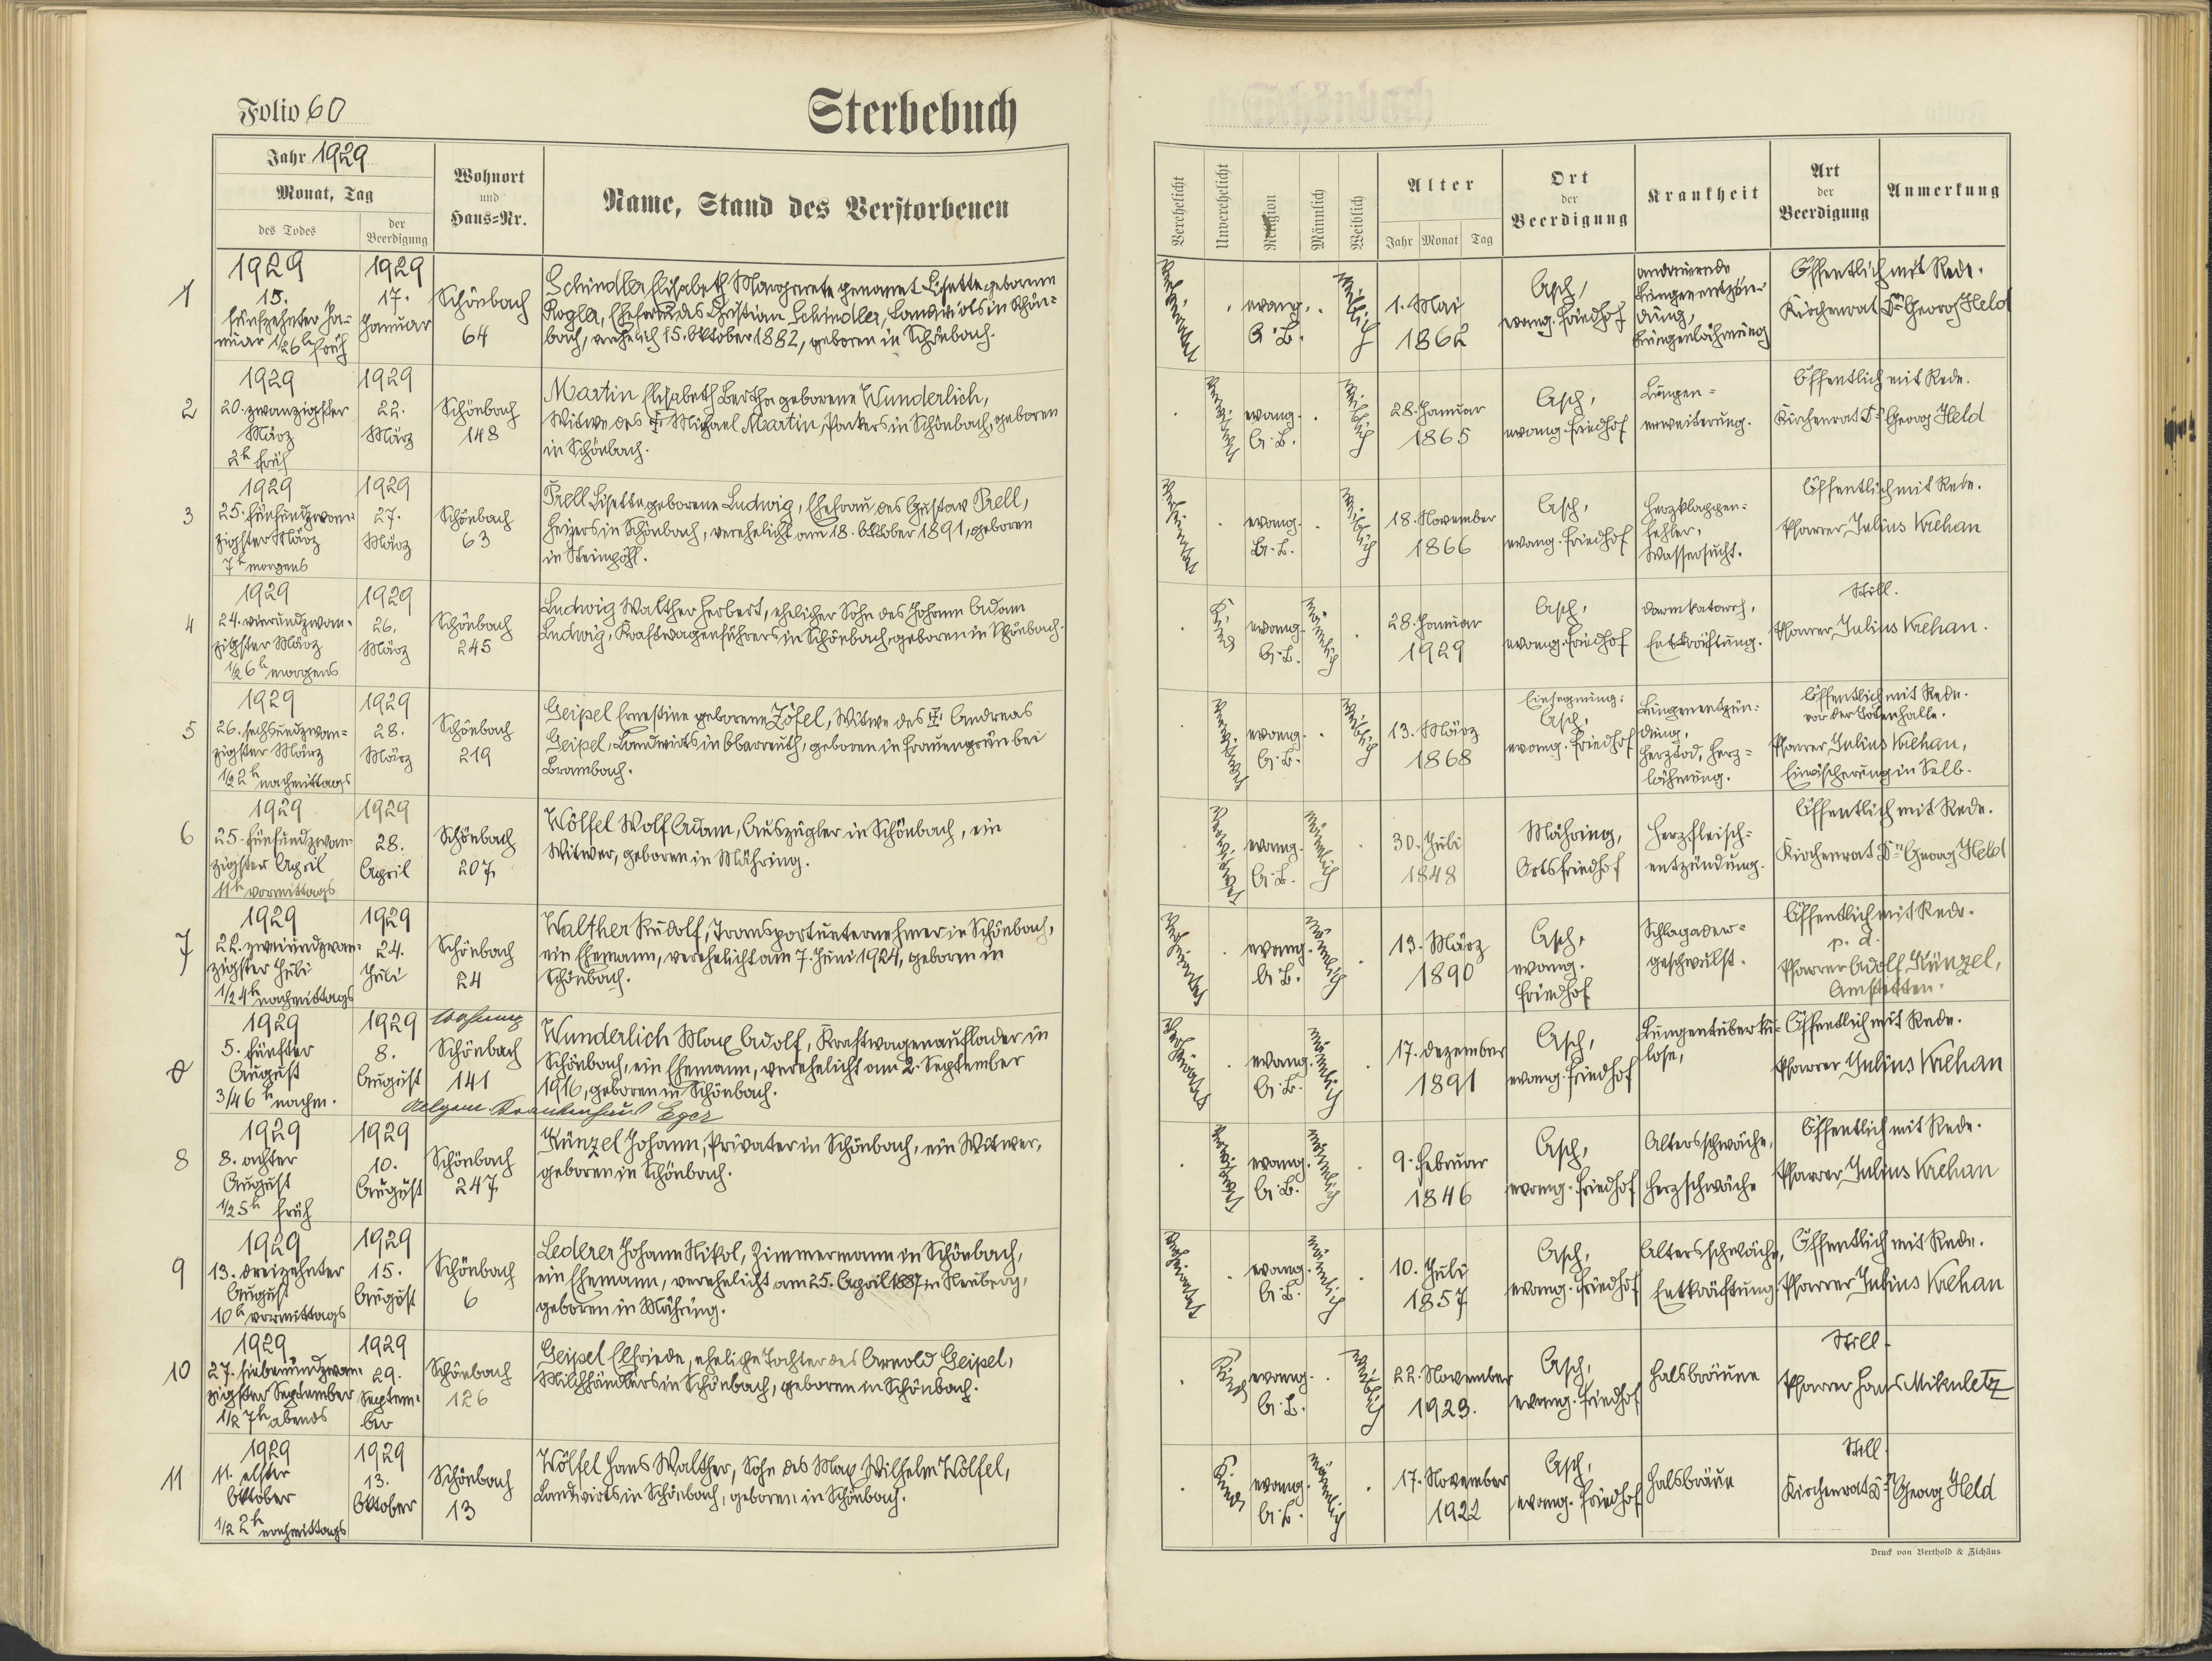 Folio 60
Sterbebuch
Jahr 1929
Monat, Tag
des Todes
der
Beerdigung
Wohnort
und
Haus=Nr.
Name, Stand des Verstorbenen
Verehelicht
Unverehelicht
Religion
Männlich
Weiblich
Alter
Jahr Monat Tag
Ort
der
Beerdigung
Krankheit
Art
der
Beerdigung
Anmerkung
1
1929
15.
fünfzehnter Ja-
nuar 1/2 6h früh
1929
17.
Januar
Schönbach
64
Schindler Elisabeth Margarete genannt Lisette geborene
Rogler, Ehefrau des Christian Schindler, Landwirts in Schön=
bach, verehelich 15. Oktober 1882, geboren in Schönbach.
Verheiratet
evang.
A. B.
weiblich
1. Mai
1862
Asch,
evang. Friedhof
andauernde
Lungenentzün-
dung,
Lungenlähmung
Öffentlich mit Rede.
Kirchenrat Dr. Georg Held
2
1929
20. zwanzigster
März
2h früh
1929
22.
März
Schönbach
148
Martin Elisabeth Bertha geborene Wunderlich,
Witwe des † Michael Martin, Packers in Schönbach, geboren
in Schönbach.
Verwitwet
evang.
A. B.
weiblich
28. Januar
1865
Asch,
evang. Friedhof
Lungen=
erweiterung.
Öffentlich mit Rede.
Kirchenrat Dr. Georg Held
3
1929
25. fünfundzwan-
zigster März
7h morgens
1929
27.
März
Schönbach
63
Prell Lisette geborene Ludwig, Ehefrau des Gustav Prell,
Heizers in Schönbach, verehelicht am 18. Oktober 1891, geboren
in Steinpöhl.
Verheiratet
evang.
A. B.
weiblich
18. November
1866
Asch,
evang. Friedhof
Herzklappen=
fehler,
Wassersucht.
Öffentlich mit Rede.
Pfarrer Julius Krehan
4
1929
24. vierundzwan-
zigster März
1/2 6h morgens
1929
26.
März
Schönbach
245
Ludwig Walther Herbert, ehelicher Sohn des Johann Adam
Ludwig, Kraftwagenführers in Schönbach, geboren in Schönbach.
Kind
evang.
A. B.
männlich
28. Januar
1929
Asch,
evang. Friedhof
Darmkatarrh,
Entkräftung.
Still.
Pfarrer Julius Krehan.
5
1929
26. sechsundzwan=
zigster März
1/2 2h nachmittags
1929
28.
März
Schönbach
219
Geipel Ernestine geborene Zöfel, Witwe des † Andreas
Geipel, Landwirts in Oberreuth, geboren in Frauengrün bei
Brambach.
Verwitwet
evang.
A. B.
weiblich
13. März
1868
Einsegnung:
Asch,
evang. Friedhof
Lungenentzün-
dung,
Herztod, Herz=
lähmung.
Öffentlich mit Rede.
vor der Totenhalle.
Pfarrer Julius Krehan,
Einäscherung in Selb.
6
1929
25. fünfundzwan-
zigster April
11h vormittags
1929
28.
April
Schönbach
207
Wölfel Wolf Adam, Auszügler in Schönbach, ein
Witwer, geboren in Mähring.
Verwitwet
evang.
A. B.
männlich
30. Juli
1848
Mähring,
Ortsfriedhof
Herzfleisch=
entzündung.
Öffentlich mit Rede.
Kirchenrat Dr. Georg Held
7
1929
22. zweiundzwan-
zigster Juli
1/2 4h nachmittags
1929
24.
Juli
Schönbach
24
Walther Rudolf, Transportunternehmer in Schönbach,
ein Ehemann, verehelicht am 7. Juni 1924, geboren in
Schönbach.
Verheiratet
evang.
A. B.
männlich
13. März
1890
Asch,
evang.
Friedhof
Schlagader=
geschwulst.
Öffentlich mit Rede.
p. d.
Pfarrer Adolf Künzel,
Amstetten.
1929
5. fünfter
August
3/4 6h nachm.
1929
8.
August
Wohnung
Schönbach
141
Wunderlich Max Adolf, Kraftwagenauflader in
Schönbach, ein Ehemann, verehelicht am 2. September
1916, geboren in Schönbach.
Allgem. Krankenhaus Eger
Verheiratet
evang.
A. B.
männlich
17. Dezember
1891
Asch,
evang. Friedhof
Lungentuberku-
lose,
Öffentlich mit Rede.
Pfarrer Julius Krehan
8
1929
8. achter
August
1/2 5h früh
1929
10.
August
Schönbach
247
Künzel Johann, Privater in Schönbach, ein Witwer,
geboren in Schönbach.
Verwitwet
evang.
A. B.
männlich
9. Februar
1846
Asch,
evang. Friedhof
Altersschwäche,
Herzschwäche
Öffentlich mit Rede.
Pfarrer Julius Krehan
9
1929
13. dreizehnter
August
10h vormittags
1929
15.
August
Schönbach
6
Lederer Johann Nikol, Zimmermann in Schönbach,
ein Ehemann, verehelicht am 25. April 1887 in Neuberg,
geboren in Mähring.
Verheiratet
evang.
A. B.
männlich
10. Juli
1857
Asch,
evang. Friedhof
Altersschwäche,
Entkräftung.
Öffentlich mit Rede.
Pfarrer Julius Krehan
10
1929
27. siebenundzwan-
zigster September
1/2 7h abends
1929
29.
Septem-
ber
Schönbach
126
Geipel Elfriede, eheliche Tochter des Arnold Geipel,
Milchhändlers in Schönbach, geboren in Schönbach.
Kind
evang.
A. B.
weiblich
22. November
1923.
Asch,
evang. Friedhof
Halsbräune
Still.
Pfarrer Hans Mikuletz
11
1929
11. elfter
Oktober
1/2 2h nachmittags
1929
13.
Oktober
Schönbach
13
Wölfel Hans Walther, Sohn des Max Wilhelm Wölfel,
Landwirts in Schönbach, geboren in Schönbach.
Kind
evang.
A. B.
männlich
17. November
1922
Asch,
evang. Friedhof
Halsbräune
Still.
Kirchenrat Dr. Georg Held
Druck von Berthold & Zichäus